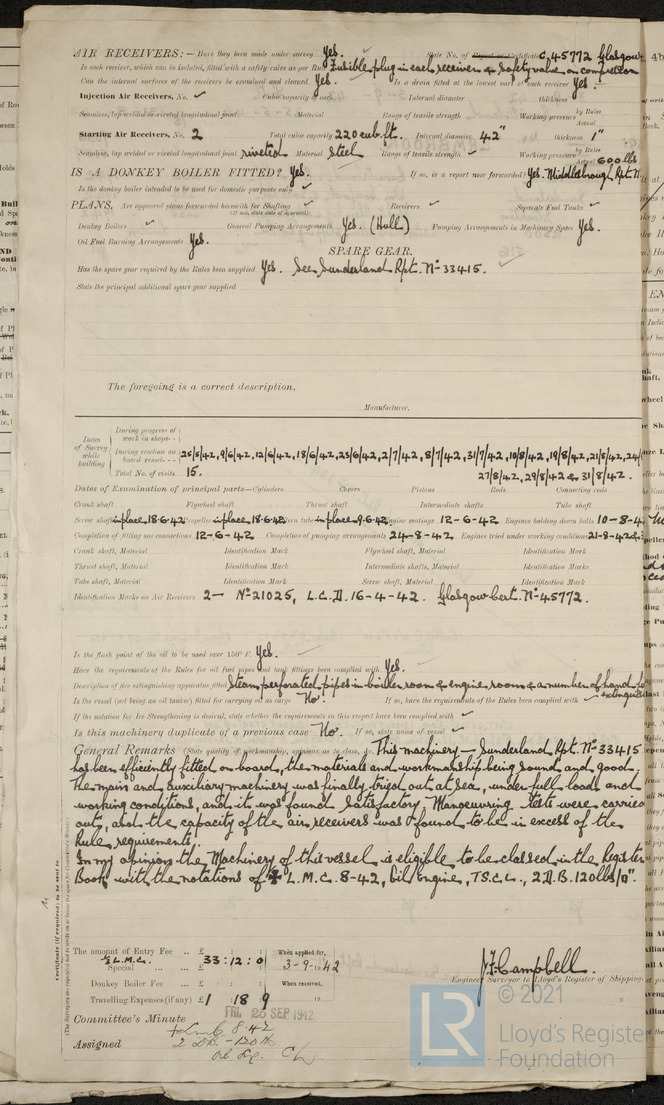 AIR RECEIVERS:— Have they been made under survey Yes. State No. of Report or Certificate C.45772 Glasgow
Is each receiver, which can be isolated, fitted with a safety valve as per Rule Fusible plug in each receiver & safety valve on compression
Can the internal surfaces of the receivers be examined and cleaned Yes. Is a drain fitted at the lowest part of each receiver Yes.
Injection Air Receivers, No. ✓ Cubic capacity of each Internal diameter thickness
Seamless, lap welded or riveted longitudinal joint Material Range of tensile strength Working pressure by Rules Actual
Starting Air Receivers, No. 2 Total cubic capacity 220 cub. ft. Internal diameter 42" thickness 1"
Seamless, lap welded or riveted longitudinal joint riveted Material Steel Range of tensile strength ✓ Working pressure by Rules Actual 600 lbs
IS A DONKEY BOILER FITTED? Yes. If so, is a report now forwarded? Yes. Middlesbrough Rpt. No
Is the donkey boiler intended to be used for domestic purposes only ✓
PLANS. Are approved plans forwarded herewith for Shafting ✓ Receivers ✓ Separate Fuel Tanks ✓
(If not, state date of approval)
Donkey Boilers ✓ General Pumping Arrangements Yes. (Hull) Pumping Arrangements in Machinery Space Yes.
Oil Fuel Burning Arrangements Yes.
SPARE GEAR.
Has the spare gear required by the Rules been supplied Yes. See Sunderland Rpt. No 33415.
State the principal additional spare gear supplied
The foregoing is a correct description,
Manufacturer.
Dates of Survey while building
During progress of work in shops - -
During erection on board vessel - - - 25/5/42, 9/6/42, 12/6/42, 18/6/42, 23/6/42, 2/7/42, 8/7/42, 31/7/42, 10/8/42, 19/8/42, 21/8/42, 24/
Total No. of visits 15. 27/8/42, 29/8/42 & 31/8/42.
Dates of Examination of principal parts—Cylinders Covers Pistons Rods Connecting rods
Crank shaft Flywheel shaft Thrust shaft Intermediate shafts Tube shaft
Screw shaft in place 18.6.42 Propeller in place 18.6.42 Stern tube in place 9.6.42 Engine seatings 12-6-42 Engines holding down bolts 10-8-4
Completion of fitting sea connections 12-6-42 Completion of pumping arrangements 24-8-42 Engines tried under working conditions 21-8-42 &
Crank shaft, Material Identification Mark Flywheel shaft, Material Identification Mark
Thrust shaft, Material Identification Mark Intermediate shafts, Material Identification Marks
Tube shaft, Material Identification Mark Screw shaft, Material Identification Mark
Identification Marks on Air Receivers 2— No 21025, L.C.D. 16-4-42. Glasgow Cert. No 45772.
Is the flash point of the oil to be used over 150° F. Yes.
Have the requirements of the Rules for oil fuel pipes and tank fittings been complied with Yes.
Description of fire extinguishing apparatus fitted Steam perforated pipes in boiler room & engine room & a number of hand
Is the vessel (not being an oil tanker) fitted for carrying oil as cargo No. If so, have the requirements of the Rules been complied with ✓
If the notation for Ice Strengthening is desired, state whether the requirements in this respect have been complied with ✓
Is this machinery duplicate of a previous case No. If so, state name of vessel ✓
General Remarks (State quality of workmanship, opinions as to class, &c. This machinery — Sunderland Rpt. No 33415
has been efficiently fitted on board, the materials and workmanship being sound and good.
The main and auxiliary machinery was finally tried out at sea, under full loads and
working conditions, and it was found satisfactory — Manoeuvring tests were carried
out, and the capacity of the air receivers was found to be in excess of the
Rule requirements.
In my opinion the Machinery of this vessel is eligible to be classed in the Register
Book with the notations of ✠ L.M.C. 8-42, Oil Engine, T.S.C.L., 2 D.B. 120 lbs/□".
The amount of Entry Fee .. £ : : When applied for,
½ L.M.C. Special ... ... £ 33 : 12 : 0 3-9-1942
Donkey Boiler Fee ... £ : : When received,
Travelling Expenses (if any) £ 1 : 18 : 9 19
J. F. Campbell.
Engineer Surveyor to Lloyd's Register of Shipping.
Committee's Minute FRI. 25 SEP 1942
Assigned + Lmc 8.42
2 DB - 120 lb
Oil Eng. CL
© 2021
LR Lloyd's Register
Foundation